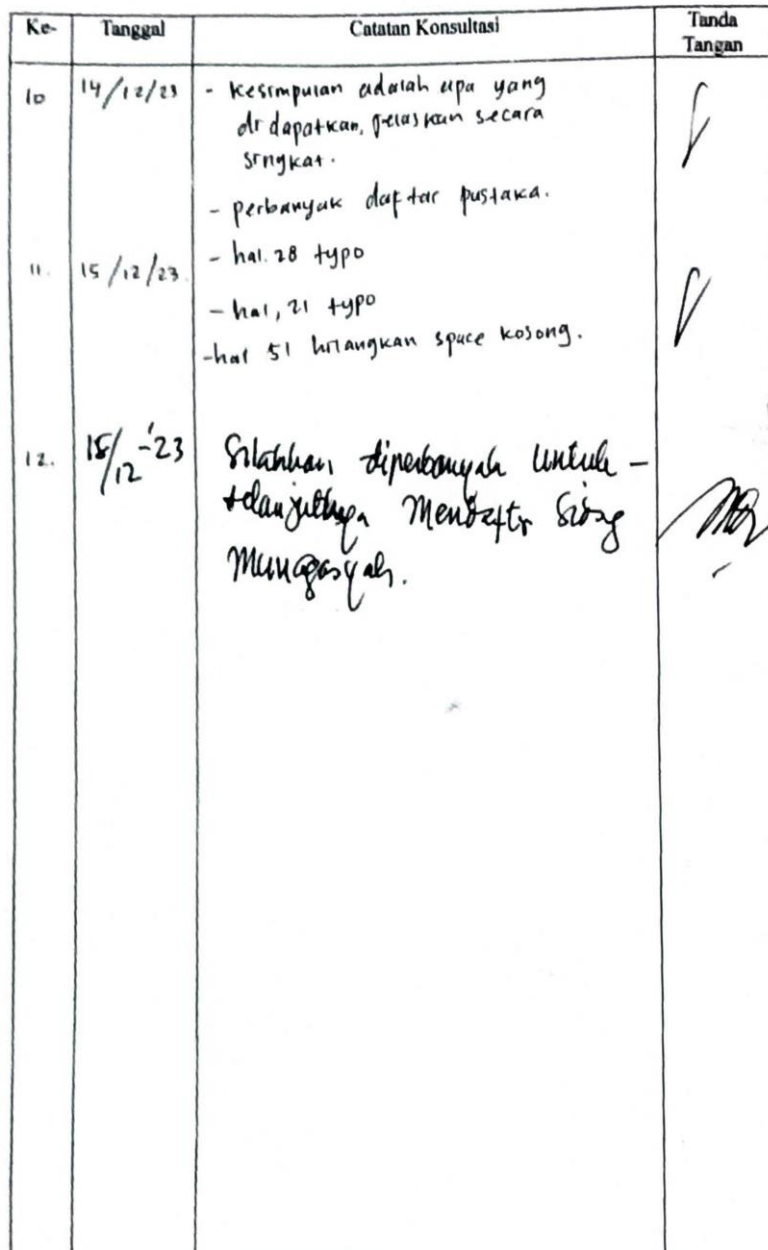 Ke- Tanggal Catatan Konsultasi Tanda Tangan
10 14/12/23 - Kesimpulan adalah apa yang
di dapatkan, jelaskan secara
singkat.
- perbanyak daftar pustaka.
11. 15/12/23. - hal. 28 typo
- hal, 21 typo
- hal 51 hilangkan space kosong.
12. 15/12 -'23 Silahkan diperbanyak untuk -
selanjutnya Mendaftr Sidang
Munaqasyah.